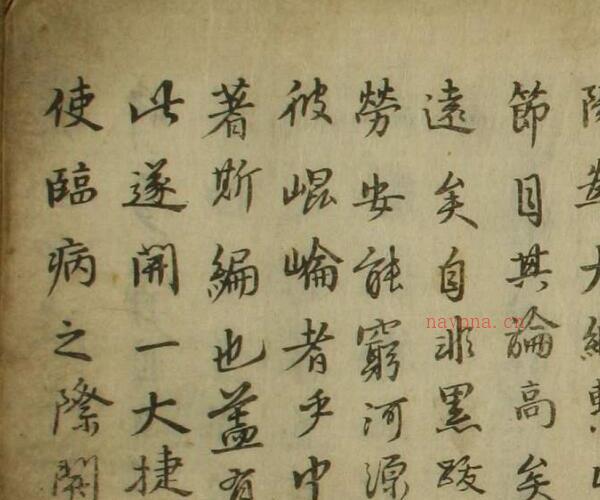 節目其論高矣
遠矣自非黑跋
勞安能窮河源
彼崐崘者乎中
著斯編也蓋有
此遂開一大捷
使臨病之際開
nayona.cn